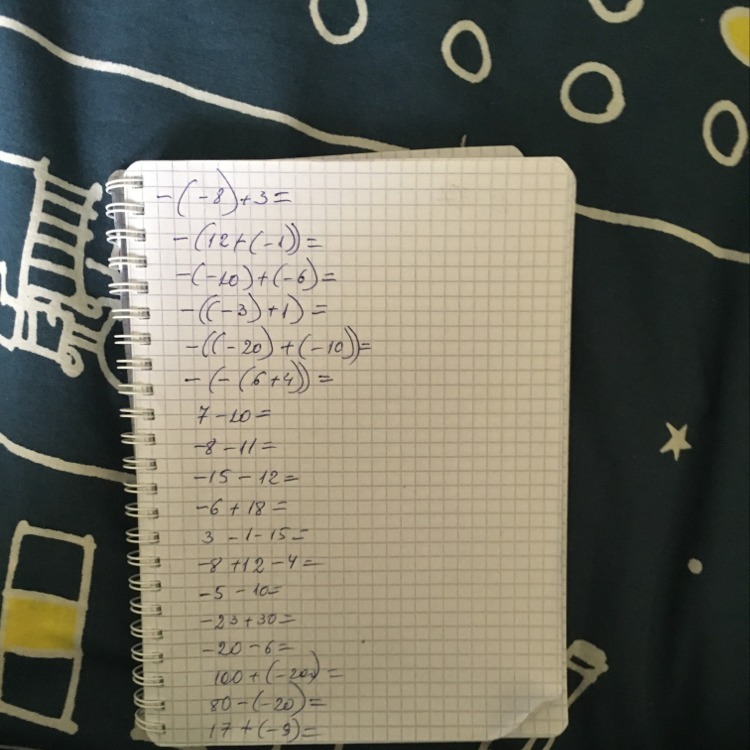 -(-8)+3=
-(12+(-1))=
-(-10)+(-6)=
-((-3)+1)=
-((-20)+(-10))=
-(-(6+4))=
7-10=
-8-11=
-15-12=
-6+18=
3-1-15=
-8+12-4=
-5-10=
-23+30=
-20-6=
100+(-20)=
80-(-20)=
17+(-9)=